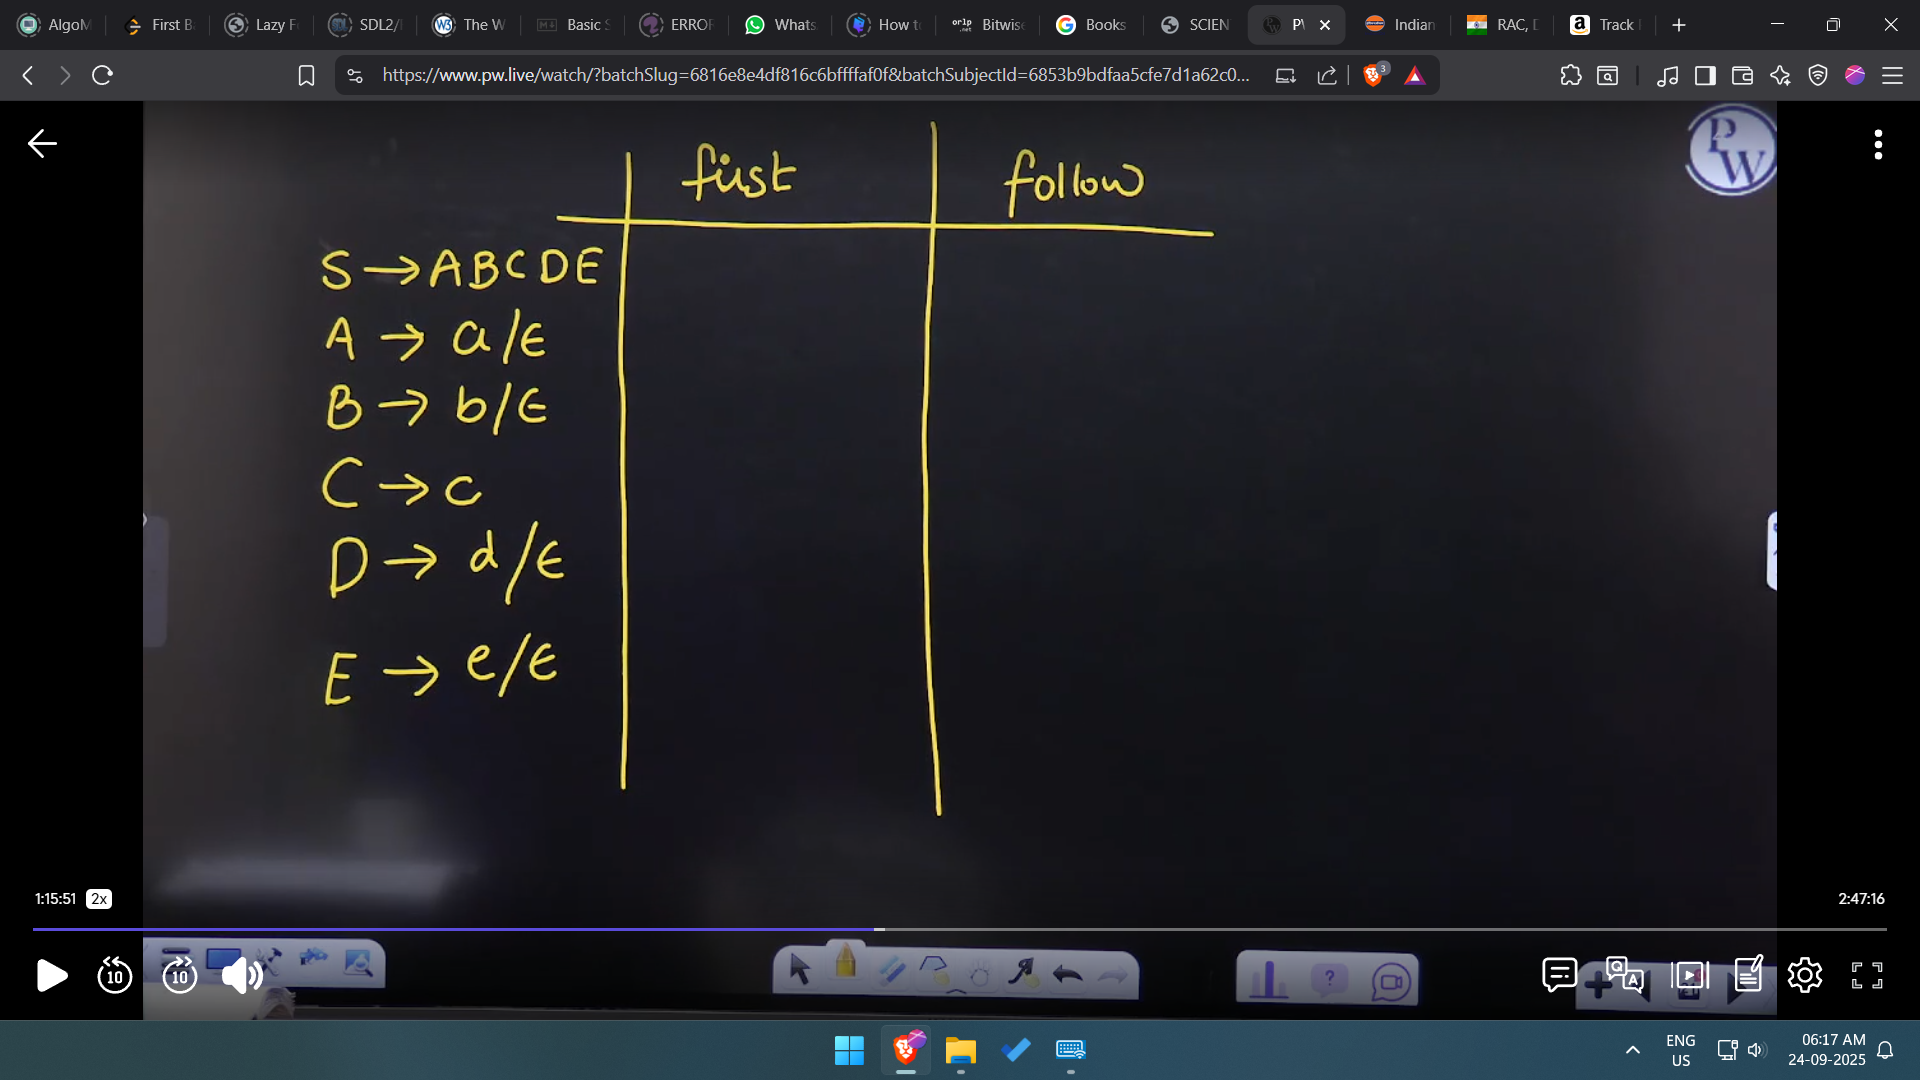 AlgoM
First B
Lazy F
SDL2/
The W
Basic S
ERROR
Whats
How t
orlp .net
Bitwise
Books
SCIEN
PW
Indian
RAC, D
Track
https://www.pw.live/watch/?batchSlug=6816e8e4df816c6bffffaf0f&batchSubjectId=6853b9bdfaa5cfe7d1a62c0...
3
PW
first follow
S → ABCDE
A → a/ϵ
B → b/ϵ
C → c
D → d/ϵ
E → e/ϵ
1:15:51 2x
2:47:16
10 10
ENG
US
06:17 AM
24-09-2025